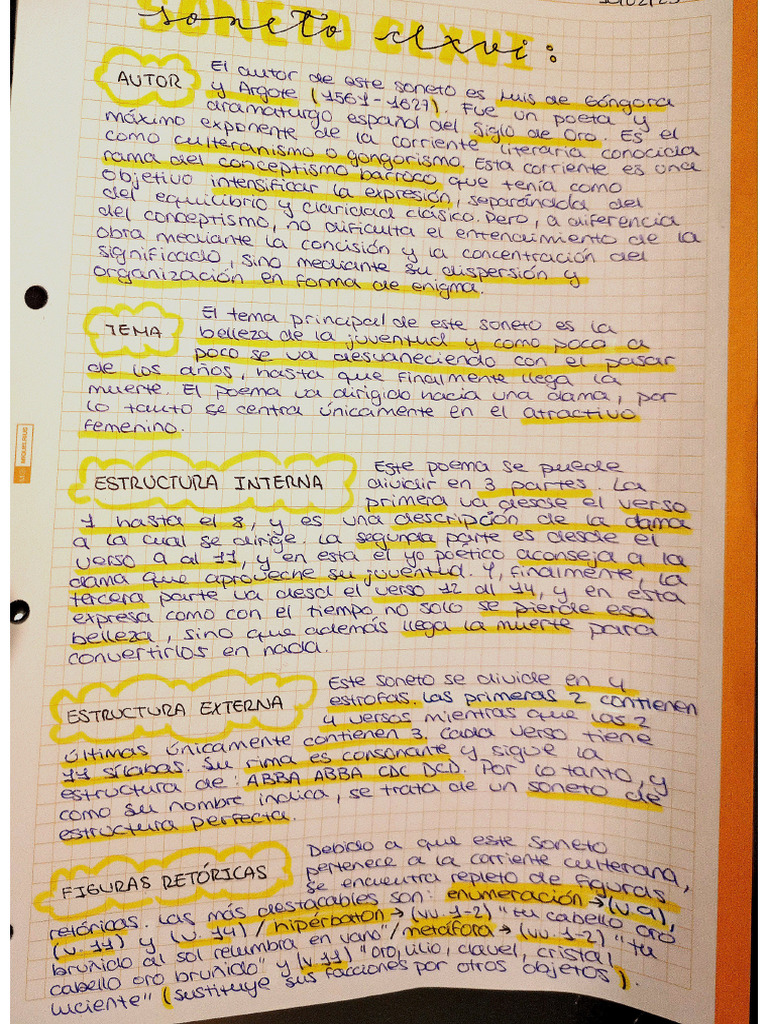 SONETO CLXVI
soneto clxvi:
AUTOR
El autor de este soneto es Luis de Góngora
y Argote (1561-1627). Fue un poeta y
dramaturgo español del Siglo de Oro. Es el
máximo exponente de la corriente literaria conocida
como culteranismo o gongorismo. Esta corriente es una
rama del conceptismo barroco, que tenía como
objetivo intensificar la expresión, separándola del
del equilibrio y claridad clásico. Pero, a diferencia
del conceptismo, no dificulta el entendimiento de la
obra mediante la concisión y la concentración del
significado, sino mediante su dispersión y
organización en forma de enigma.
TEMA
El tema principal de este soneto es la
belleza de la juventud y como poco a
poco se va desvaneciendo con el pasar
de los años, hasta que finalmente llega la
muerte. El poema va dirigido hacia una dama, por
lo tanto se centra únicamente en el atractivo
femenino.
ESTRUCTURA INTERNA
Este poema se puede
dividir en 3 partes. La
primera va desde el verso
1 hasta el 8, y es una descripción de la dama
a la cual se dirige. La segunda parte es desde el
verso 9 al 11, y en esta el yo poético aconseja a la
dama que aproveche su juventud. Y, finalmente, la
tercera parte va desd el verso 12 al 14, y en esta
expresa como con el tiempo no solo se pierde esa
belleza, sino que además llega la muerte para
convertirlos en nada.
ESTRUCTURA EXTERNA
Este soneto se divide en 4
estrofas. Las primeras 2 contienen
4 versos mientras que las 2
últimas únicamente contienen 3. Cada verso tiene
11 sílabas. Su rima es consonante y sigue la
estructura de: ABBA ABBA CDC DCD. Por lo tanto, y
como su nombre indica, se trata de un soneto de
estructura perfecta.
FIGURAS RETÓRICAS
Debido a que este soneto
pertenece a la corriente culterana,
se encuentra repleto de figuras
retóricas. Las más destacables son: enumeración → (v.9),
(v.11) y (v.14) / hipérbaton → (vv.1-2) "tu cabello oro
bruñido al sol relumbra en vano" / metáfora → (vv.1-2) "tu
cabello oro bruñido" y (v.11) "oro, lilio, clavel, cristal
luciente" (sustituye sus facciones por otros objetos).